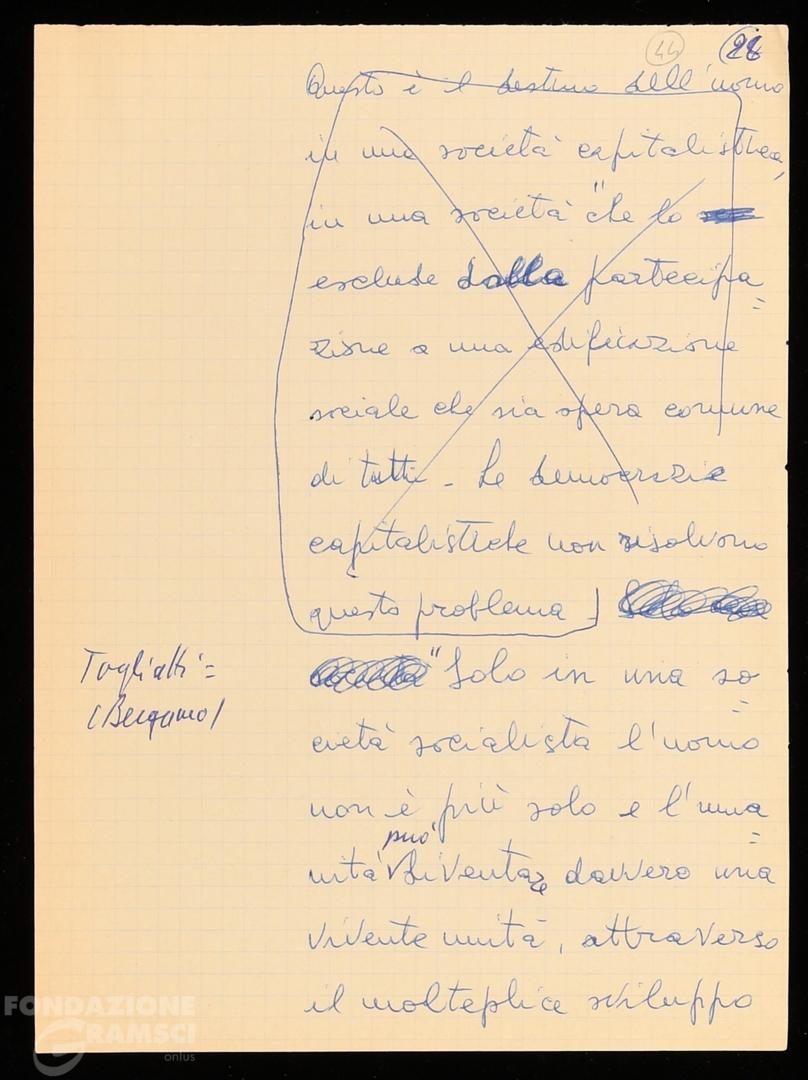 44 28
Questo è il destino dell'uomo
in una società capitalistica,
in una società "che lo
esclude dalla partecipa=
zione a una edificazione
sociale che sia opera comune
di tutti - Le democrazie
capitalistiche non risolvono
questo problema
Togliatti=
(Bergamo)
"Solo in una so=
cietà socialista l'uomo
non è più solo e l'uma=
può
nità diventare davvero una
vivente unità, attraverso
il molteplice sviluppo
FONDAZIONE
GRAMSCI
onlus